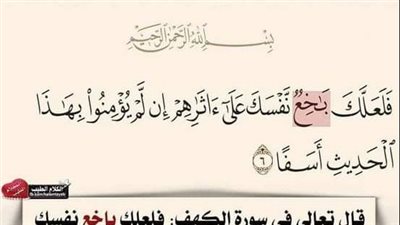 بِسْمِ اللَّهِ الرَّحْمَٰنِ الرَّحِيمِ
فَلَعَلَّكَ بَاخِعٌ نَّفْسَكَ عَلَىٰ ءَاثَارِهِمْ إِن لَّمْ يُؤْمِنُوا۟ بِهَٰذَا
الْحَدِيثِ أَسَفًا ٦
الكلام الطيب
قال تعالى في سورة الكهف: فلعلك باخع نفسك